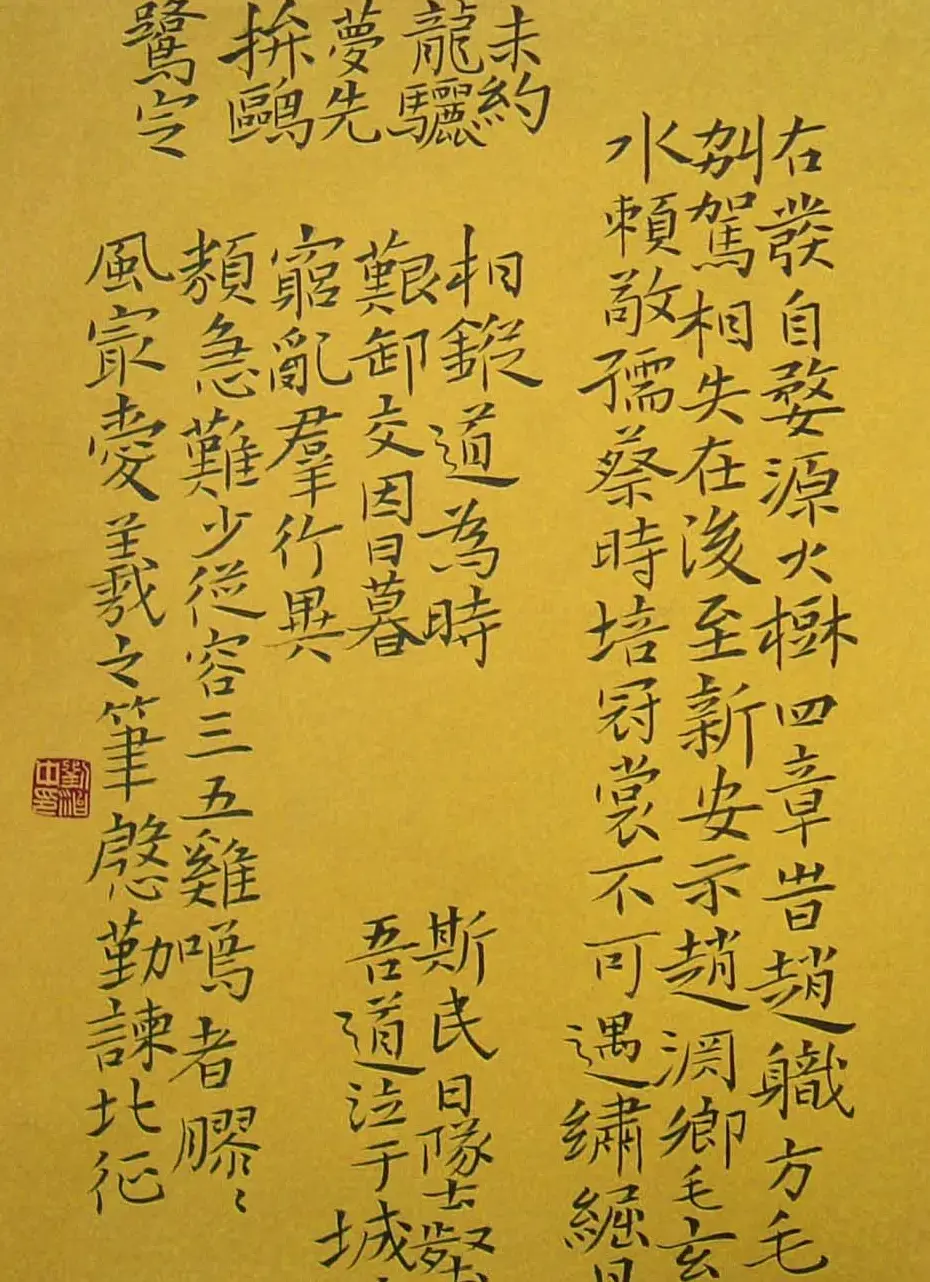 右發自婺源大樹四章昔趙職方毛
別駕相失在後至新安示趙淵鄉毛玄
水賴敬孺蔡時培冠裳不可遇繡
未約 相鏦道為時 斯民日隊
龍驪 艱卸交因日暮 吾道泣于城
夢先 窮亂羣行異
拚鷗 類急難少從容三五雞鳴者膠〻
鷺定 風㝡愛羲之筆慇勤諫北征